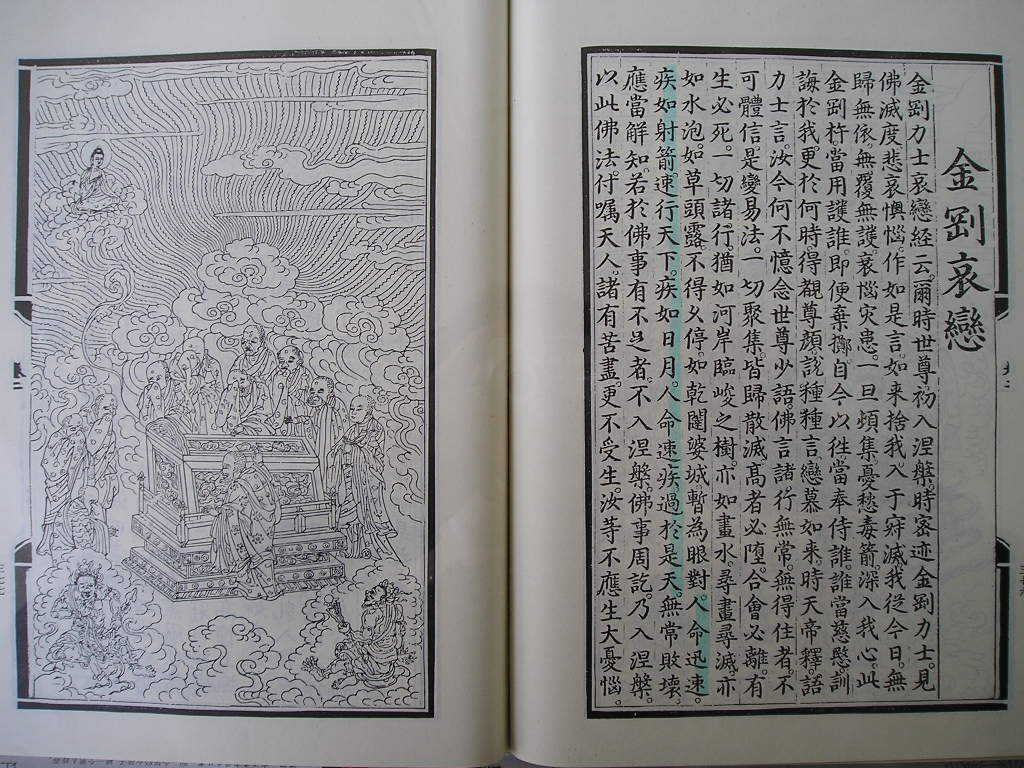 金剛哀戀
金剛力士哀戀經云。爾時世尊初入涅槃。時密迹金剛力士。見
佛滅度悲哀懊惱。作如是言。如來捨我入于寂滅。我從今日。無
歸無依。無覆無護。衰惱灾患。一旦頓集。憂愁毒箭。深入我心。此
金剛杵。當用護誰。即便棄擲。自今以徃。當奉侍誰。誰當慈愍訓
誨於我。更於何時。得覩尊顏。說種種言。戀慕如來。時天帝釋。語
力士言。汝今何不憶念世尊少語。佛言諸行無常。無得住者。不
可體信。是變易法。一切聚集。皆歸散滅。高者必墮。合會必離。有
生必死。一切諸行。猶如河岸臨峻之樹。亦如畫水。尋畫尋滅。亦
如水泡。如草頭露。不得久停。如乾闥婆城。暫為眼對。人命迅速。
疾如射箭。速行天下。疾如日月。人命速疾。過於是天。無常敗壞。
應當解知。若於佛事有不足者。不入涅槃。佛事周訖。乃入涅槃。
以此佛法。付囑天人。諸有苦盡。更不受生。汝等不應生大憂惱。